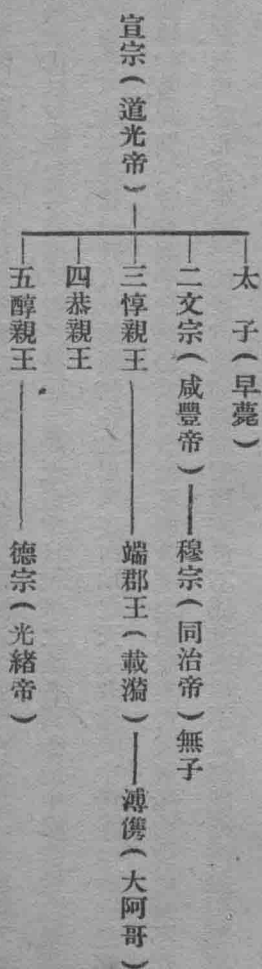 宣宗(道光帝)
太　子(早薨)
二文宗(咸豐帝)——穆宗(同治帝)無子
三惇親王——端郡王(載漪)——溥儁(大阿哥)
四恭親王
五醇親王——德宗(光緒帝)